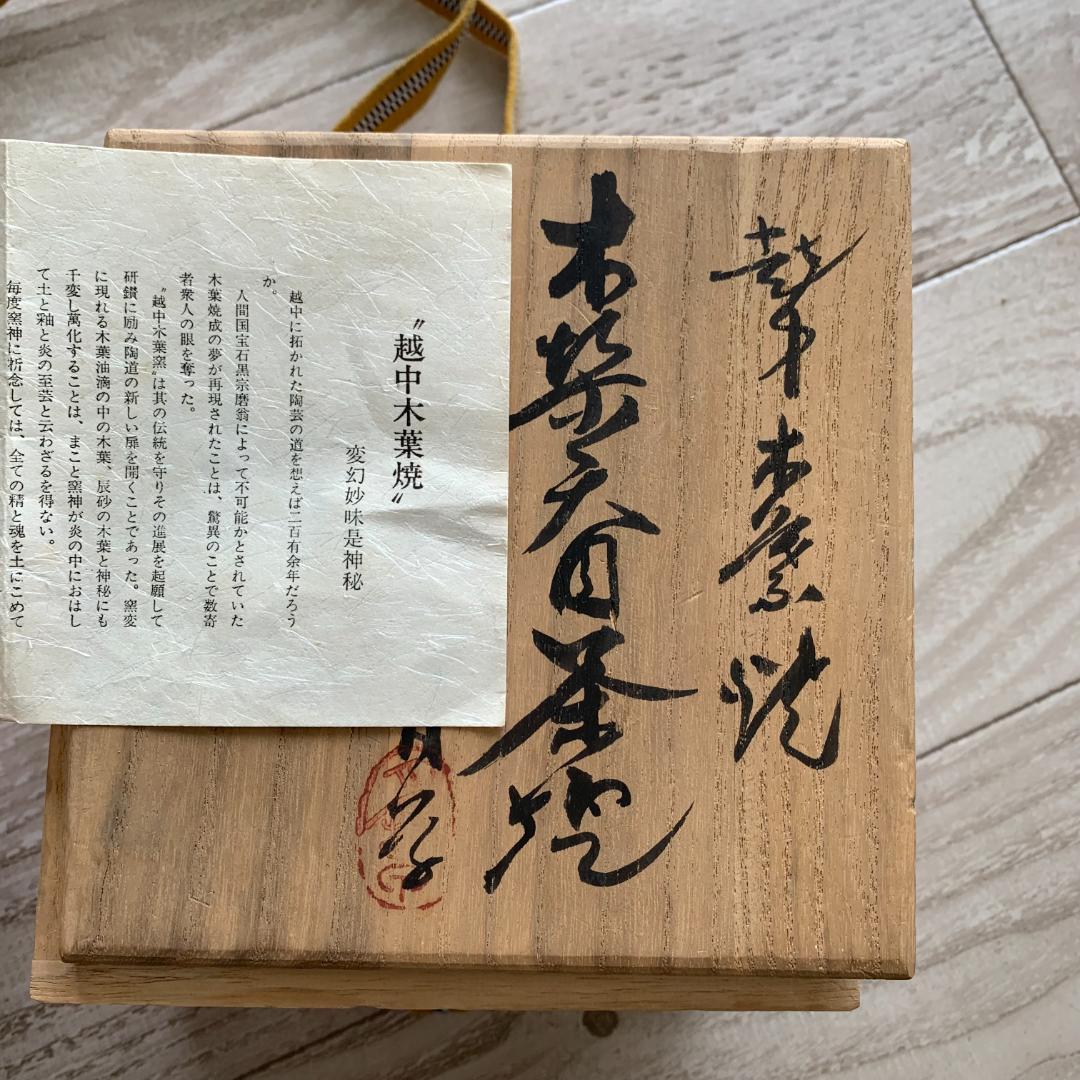 越中木葉焼
木葉天目茶盌
〝越中木葉焼〟
変幻妙味是神秘
越中に拓かれた陶芸の道を想えば二百有余年だろう
か。
人間国宝石黒宗磨翁によって不可能かとされていた
木葉焼成の夢が再現されたことは、驚異のことで数寄
者衆人の眼を奪った。
〝越中木葉窯〟は其の伝統を守りその進展を起願して
研鑚に励み陶道の新しい扉を開くことであった。窯変
に現れる木葉油滴の中の木葉、辰砂の木葉と神秘にも
千変し萬化することは、まこと窯神が炎の中におはし
て土と釉と炎の至芸と云わざるを得ない。
毎度窯神に祈念しては、全ての精と魂を土にこめて